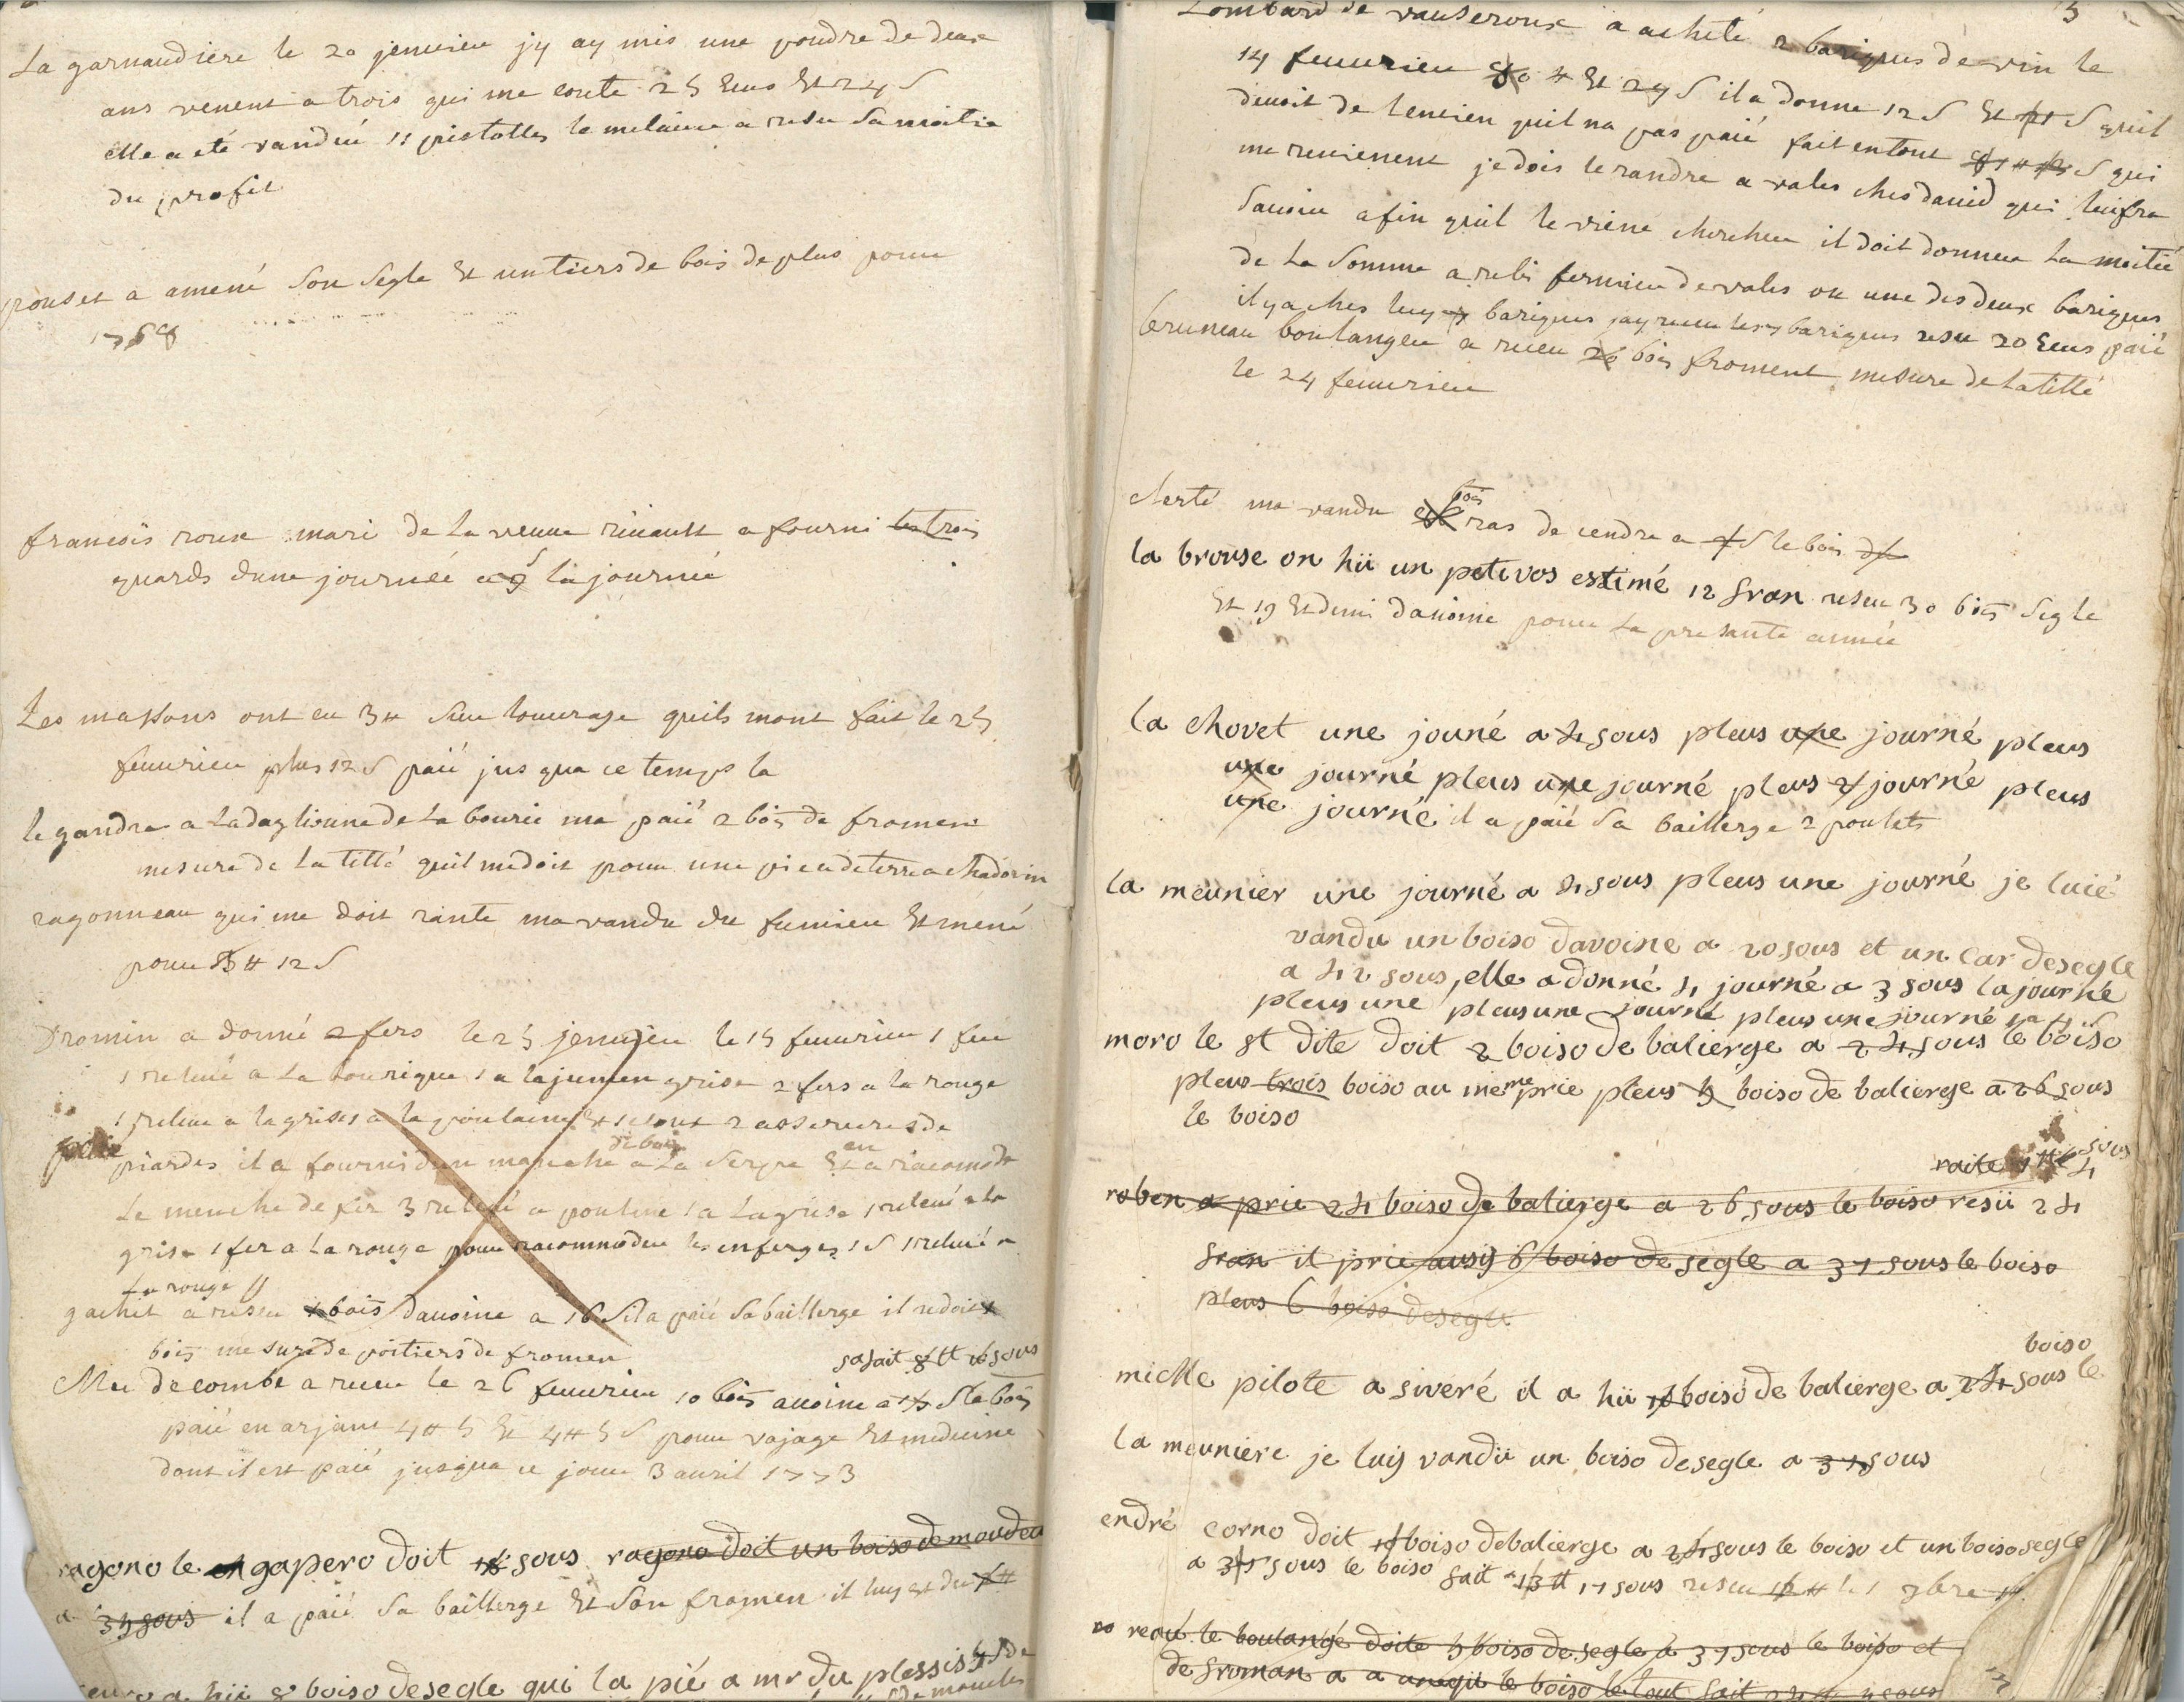 La garnaudiere le 20 jenvrieu jy ay mis une poudre de deux
ans venent a trois qui me coute 25 Ecus Et 24 s
elle a eté vandüe 11 pistolles le metaiere a resu sa moitie
du profit
prouset a amené son segle Et un tiers de bois de plus pour
1768
francois roux mari de La veuve rivault a fourni les trois
quards dune journée a 9 s la journée
Les massons ont eu 3 # sur louvrage quils mont fait le 25
feuvrieu plus 12 s paié jus qua ce temps la
le gandre a La daglionne de La bourie ma paié 2 bois de froment
mesure de La tillé quil me doit pour une piece de terre a chadorin
ragonneau qui me doit rante ma vandu du fumieu Et mené
pour # 12 s
Dromin a donné 2 fers le 25 jenvrieu le 15 feuvrieu 1 feu
1 relevé a La bourique 1 a la jumen grise 2 fers a la rouge
1 releve a la grise a la poulaine Et 2 asserures de
piardes il a fourni dun manche de bois a La serpe Et en a racomodé
Le menche de fer 3 relevé a pouline 1 a La grise 1 relevé a la
grise 1 fer a La rouge pour racommoder les enferges 1 s 1 relevé a
La rouge
gachet a resu bois davoine a 16 s il a paié sa baillerge il redoit
bois mesure de poitiers de fromen
safait 8 # 16 sous
Mr decombe a receu le 26 feuvrieu 10 bois avoine a s le bois
paié en arjant 4 # 5 Et 4 # 5 s pour vojage Et medecine
dont il est paié jusqua ce jour 3 avril 1773
ragono le gapero doit sous ragono doit un boiso de moudeu
a 35 sous il a paié sa baillerge Et son fromen il luy est du #
a hü 8 boiso de segle qui la pié a mr du plessis
Lombard de vauseroux a acheté 2 bariques de vin le
14 feuvrieu # Et 29 s il a donne 12 s Et s quil
devoit de lencien quil na pas paié fait en tout s qui
me revienent je dois le randre a vales ches david qui lui fra
savoir afin quil le viene chercheu il doit donneu La moitié
de La somme a relis fermieu de vales ou une des deux bariques
il y a ches luy bariques jay receu les bariques resu 20 Ecus paié
bruneau boulangeu a receu 26 bois froment mesure de La tillé
le 24 feuvrieu
clerté ma vandu bois ras de cendre a s le bois
la brouse on hü un peti vos estimé 12 fran reseu 30 bois segle
Et 19 Et demi davoine pour La presante année
la chovet une jouné a 4 sous pleus une journé pleus
une journé pleus une journé pleus 2 journé pleus
une journé il a paié sa baillerge 2 poulets
la meunier une journé a 4 sous pleus une journé je luié
vandu un boiso davoine a 20 sous et un car de segle
a 42 sous, elle a donné 4 journé a 3 sous la journé
pleus une pleus une journé pleus une journé
moro le st dite doit 2 boiso de balierge a 24 sous le boiso
pleus trois boiso au meme prie pleus 5 boiso de balierge a 26 sous
le boiso
raite sous
roben a prie 24 boiso de balierge a 26 sous le boiso resü 24
fran il prie ausy 6 boiso de segle a 37 sous le boiso
pleus 6 boiso de segle
boiso
michle pilote a siveré il a hü boiso de balierge a 24 sous le
la meuniere je luy vandü un boiso de segle a 37 sous
endré corno doit boiso de balierge a 24 sous le boiso et un boiso segle
a 37 sous le boiso fait 13 # 17 sous reseu # le 1 9bre
reau le boulangé doite 5 boiso de segle a 37 sous le boiso et
de froman a le boiso le tout fait sous